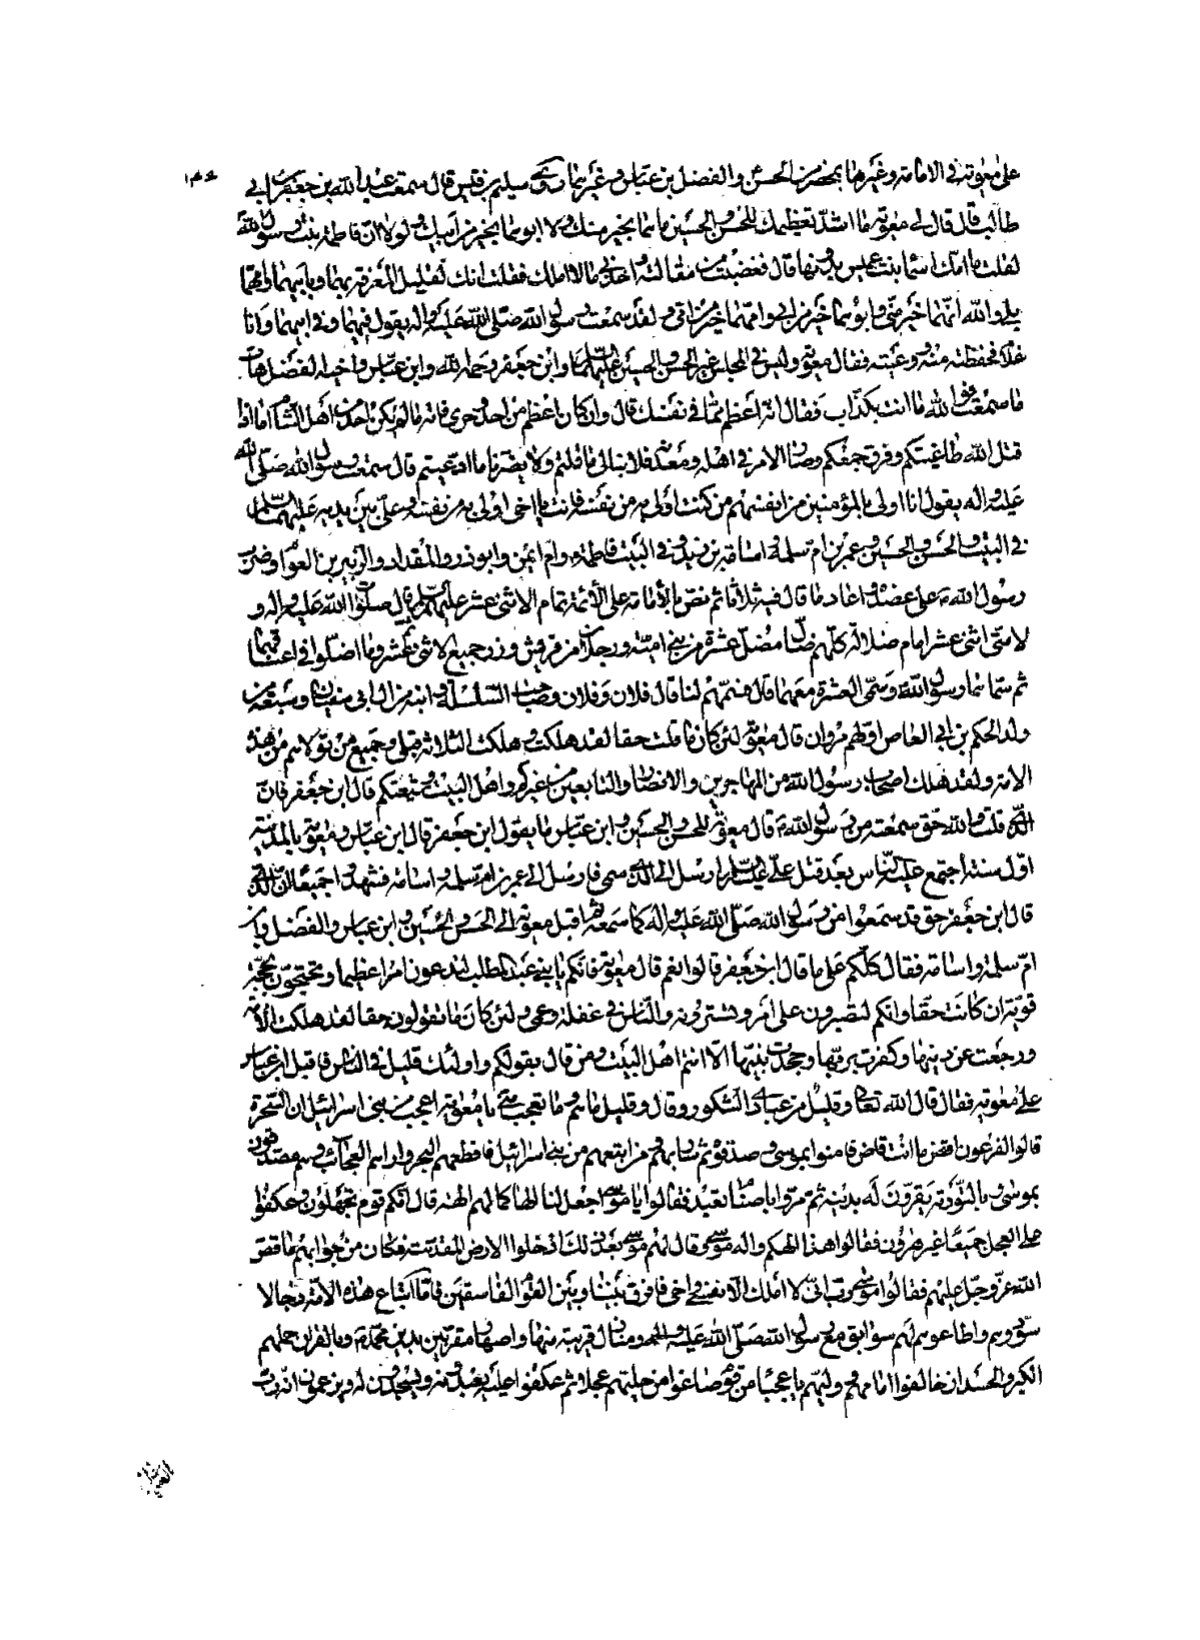 على معوية في الامامة وغيرها بمحضر من الحسن والفضل بن عباس وغيرهما روى سليم بن قيس قال سمعت عبد الله بن جعفر بن ابي
طالب قال قال لي معوية ما اشد تعظيمك للحسن والحسين ما هما بخير منك ولا ابوهما بخير من ابيك ولولا ان فاطمة بنت رسول الله
لقلت ما امك اسما بنت عميس بدونها قال فغضبت من مقالته واخذني مالا املك فقلت انك لقليل المعرفة بهما وبابيهما وامهما
بلى والله انهما خير مني وابوهما خير من ابي وامهما خير من امي ولقد سمعت رسول الله صلى الله عليه واله يقول فيهما وفي ابيهما وانا
غلام فحفظته منه ووعيته فقال معوية وليس في المجلس غير الحسن والحسين عليهما السلام وابن جعفر رحمه الله وابن عباس واخيه الفضل هات
ما سمعت فو الله ما انت بكذاب فقال انه اعظم مما في نفسك قال وان كان اعظم من احد وحرى فانه ما لم يكن احد من اهل الشام اما اذا
قتل الله طاغيتكم وفرق جمعكم وصار الامر في اهله ومعدنه فلا نبالي ما قلتم ولا يضرنا ما ادعيتم قال سمعت رسول الله صلى الله
عليه واله يقول انا اولى بالمؤمنين من انفسهم من كنت اولى به من نفسه فانت يا اخي اولى به من نفسه وعلي بين يديه عليهما السلام
في البيت والحسن والحسين وعمر بن ام سلمة واسامة بن زيد وفي البيت فاطمة وام ايمن وابو ذر والمقداد والزبير بن العوام وضرب
رسول الله ص على عضده واعاد ما قال فيه ثلاثا ثم نص بالامامة على الائمة تمام الاثني عشر عليهم السلام ثم قال صلوات الله عليه واله و
لامتي اثني عشر امام ضلالة كلهم ضال مضل عشرة من بني امية ورجلان من قريش وزر جميع الاثني عشر وما اضلوا في اعناقهما
ثم سماهما رسول الله ص وسمى العشرة معهما قال فسمهم لنا قال فلان وفلان وصاحب السلسلة وابنه من ال ابي سفيان وسبعة من
ولد الحكم بن ابي العاص اولهم مروان قال معوية لئن كان ما قلت حقا لقد هلكت وهلكت الثلاثة قبلي وجميع من تولاهم من هذه
الامة ولقد هلك اصحاب رسول الله من المهاجرين والانصار والتابعين من غيركم واهل البيت وشيعتكم قال ابن جعفر فان
الذي قلت والله حق سمعته من رسول الله ص قال معوية للحسن والحسين وابن عباس ما يقول ابن جعفر قال ابن عباس ومعوية بالمدينة
اول سنة اجتمع عليه الناس بعد قتل علي عليه السلام ارسل الى الذي سمى فارسل الى عمر بن ام سلمة واسامة فشهدوا جميعا ان الذي
قال ابن جعفر حق قد سمعوا من رسول الله صلى الله عليه واله كما سمعه ثم اقبل معوية الى الحسن والحسين وابن عباس والفضل وابن
ام سلمة واسامة فقال كلكم على ما قال ابن جعفر قالوا نعم قال معوية فانكم يا بني عبد المطلب لتدعون امرا عظيما وتحتجون بحجة
قوية ان كانت حقا وانكم لتصبرون على امر وتسترونه والناس في غفلة وعمى ولئن كان ما تقولون حقا لقد هلكت الامة
ورجعت عن دينها وكفرت بربها وجحدت نبيها الا انتم اهل البيت ومن قال بقولكم واولئك قليل في الناس فاقبل ابن عباس
على معوية فقال قال الله تعالى وقليل من عبادي الشكور وقال وقليل ما هم وما تعجب مني يا معوية اعجب من بني اسرائيل ان السحرة
قالوا لفرعون اقض ما انت قاض فامنوا بموسى وصدقوه ثم سار بهم ومن اتبعهم من بني اسرائيل فاقطعهم البحر واراهم العجائب وهم مصدقون
بموسى وبالتورية يقرون له بدينه ثم مروا باصنام تعبد فقالوا يا موسى اجعل لنا الها كما لهم الهة قال انكم قوم تجهلون وعكفوا
على العجل جميعا غير هرون فقالوا هذا الهكم واله موسى قال لهم موسى بعد ذلك ادخلوا الارض المقدسة فكان من جوابهم ما قص
الله عز وجل عليهم فقال موسى رب اني لا املك الا نفسي واخي فافرق بيننا وبين القوم الفاسقين فما اتباع هذه الامة رجالا
سودوهم واطاعوهم لهم سوابق مع رسول الله صلى الله عليه واله ومنازل قريبة منه واصهار مقرين بدين محمد ص وبالقران حملهم
الكبر والحسد ان خالفوا امامهم ووليهم يا عجبا من قوم صاغوا من حليهم عجلا ثم عكفوا عليه يعبدونه ويسجدون له ويزعمون انه رب